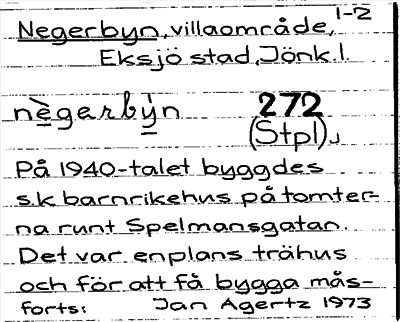 1-2
Negerbyn, villaområde,
Eksjö stad, Jönk. l.
nègarbýn 272
(Stpl)
På 1940-talet byggdes
s.k barnrikehus på tomter-
na runt Spelmansgatan.
Det var enplans trähus
och för att få bygga mås-
forts: Jan Agertz 1973